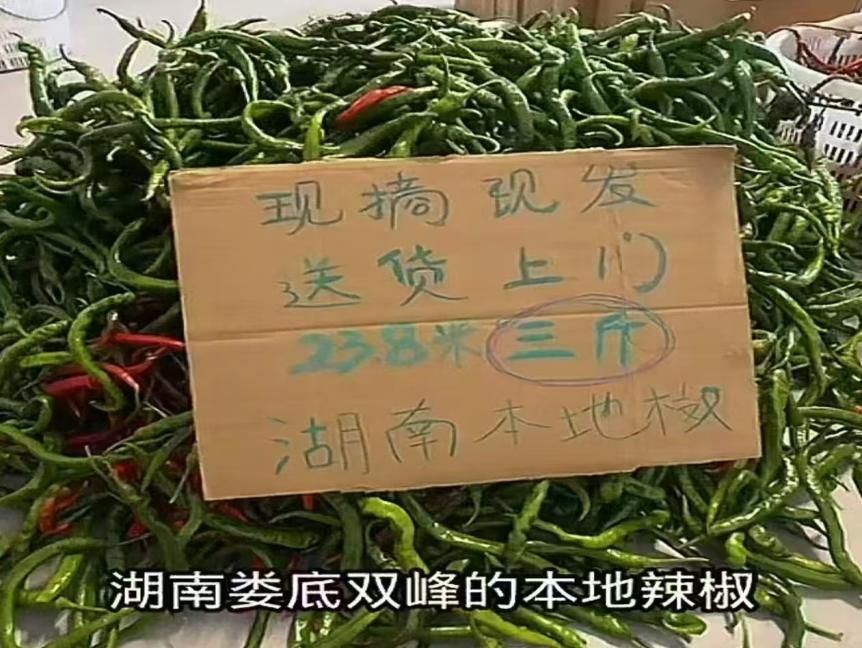 现摘现发
送货上门
23.8米三斤
湖南本地椒
湖南娄底双峰的本地辣椒